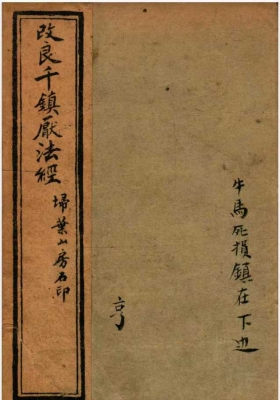 牛馬死損鎮在下边
亨
改良千鎮厭法經
埽葉山房石印